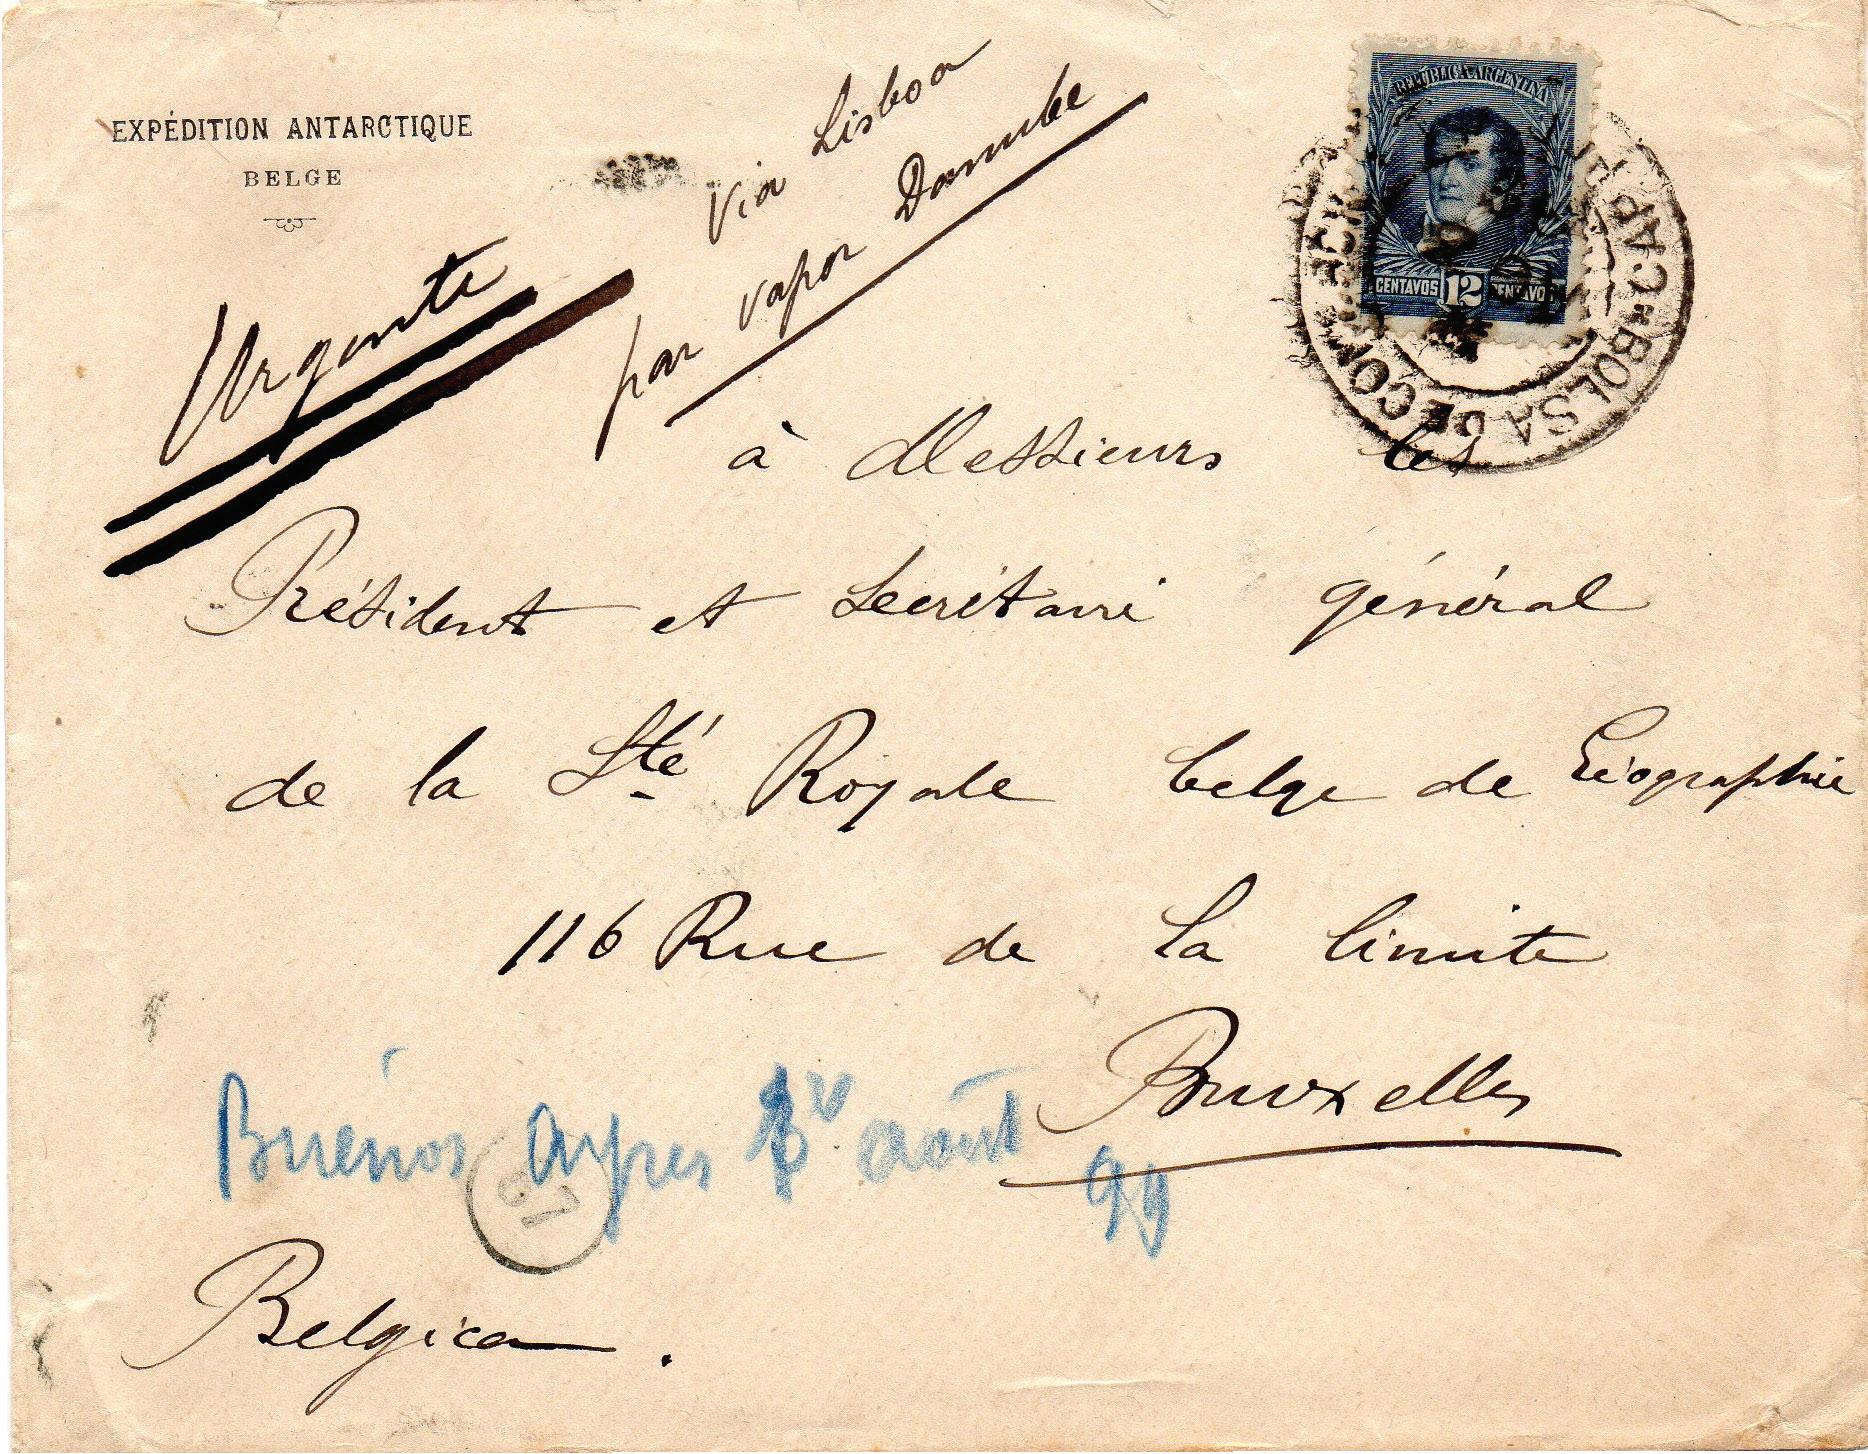 EXPÉDITION ANTARCTIQUE
BELGE
Urgente
Via Lisboa
par vapor Danube
REPÚBLICA ARGENTINA
CENTAVOS 12 CENTAVOS
CAP BOLSA DE COMERCI
à Messieurs les
Président et Secrétaire général
de la Sté Royale belge de Géographie
116 Rue de la limite
Bruxelles
Buenos Ayres août 99
87
Belgica.